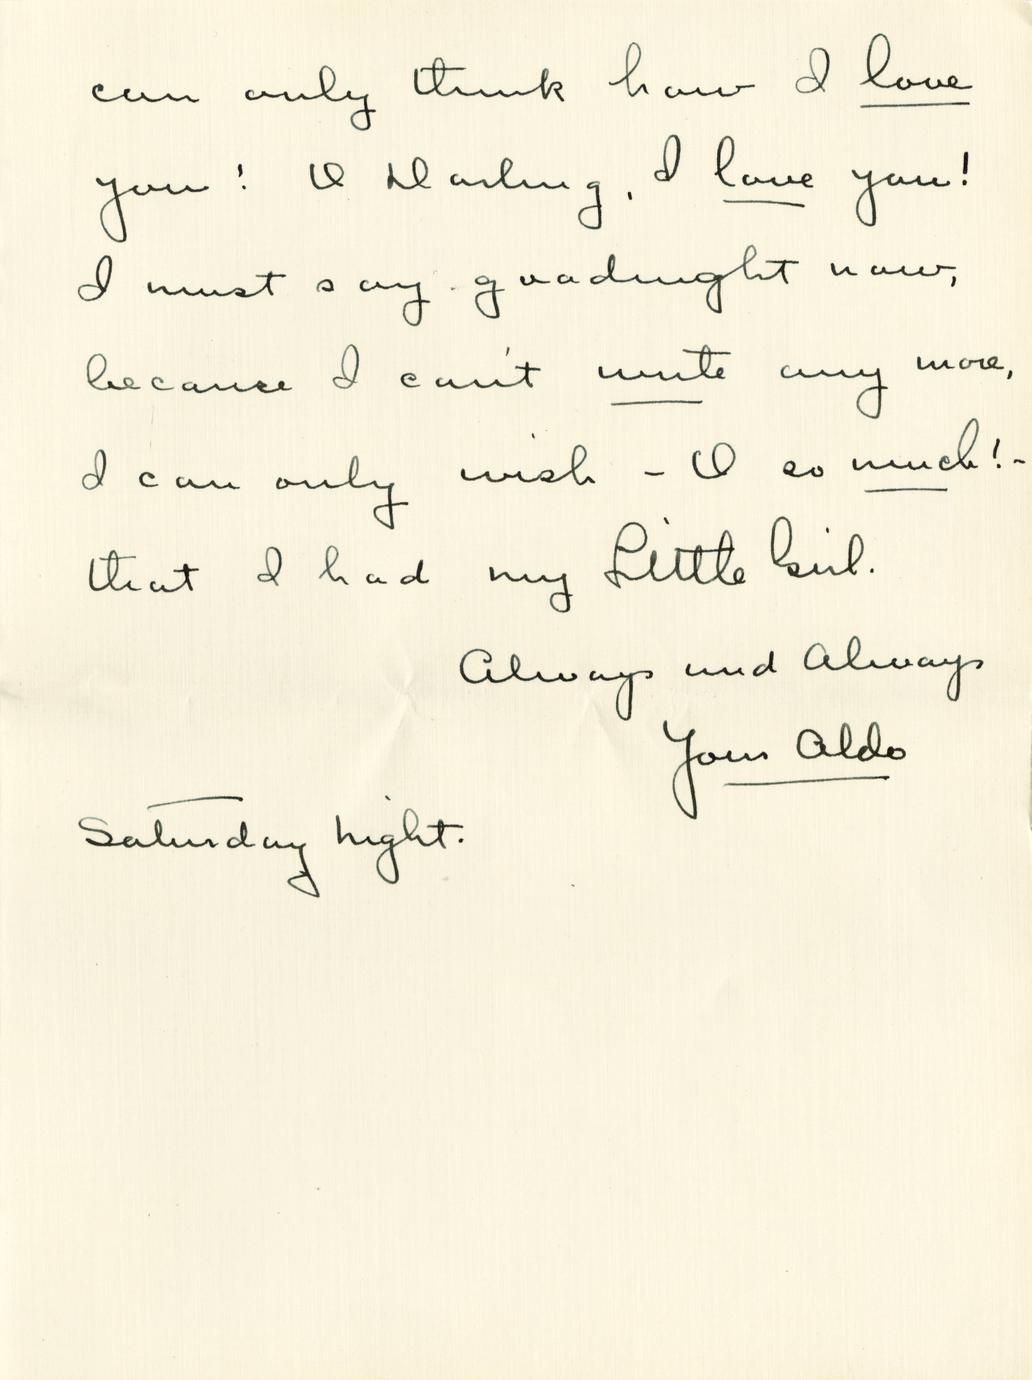 can only think how I love
you! O Darling, I love you!
I must say goodnight now,
because I can't write any more,
I can only wish - O so much! -
that I had my Little Girl.
Always and Always
Your Aldo
Saturday Night.